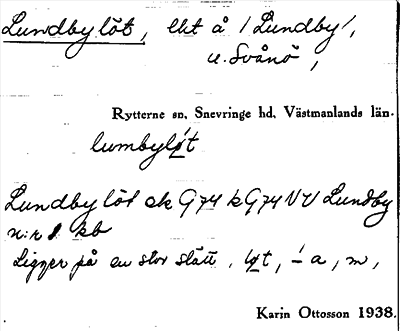 Lundbylöt, Ekt å /Lundby/,
u. Svånö,
Rytterne sn, Snevringe hd, Västmanlands län.
lumbyløt
Lundbylöt ek G74 k G74 NV Lundby
n:r 1 kb
Ligger på en stor slätt. løt, – a, m,
Karin Ottosson 1938.